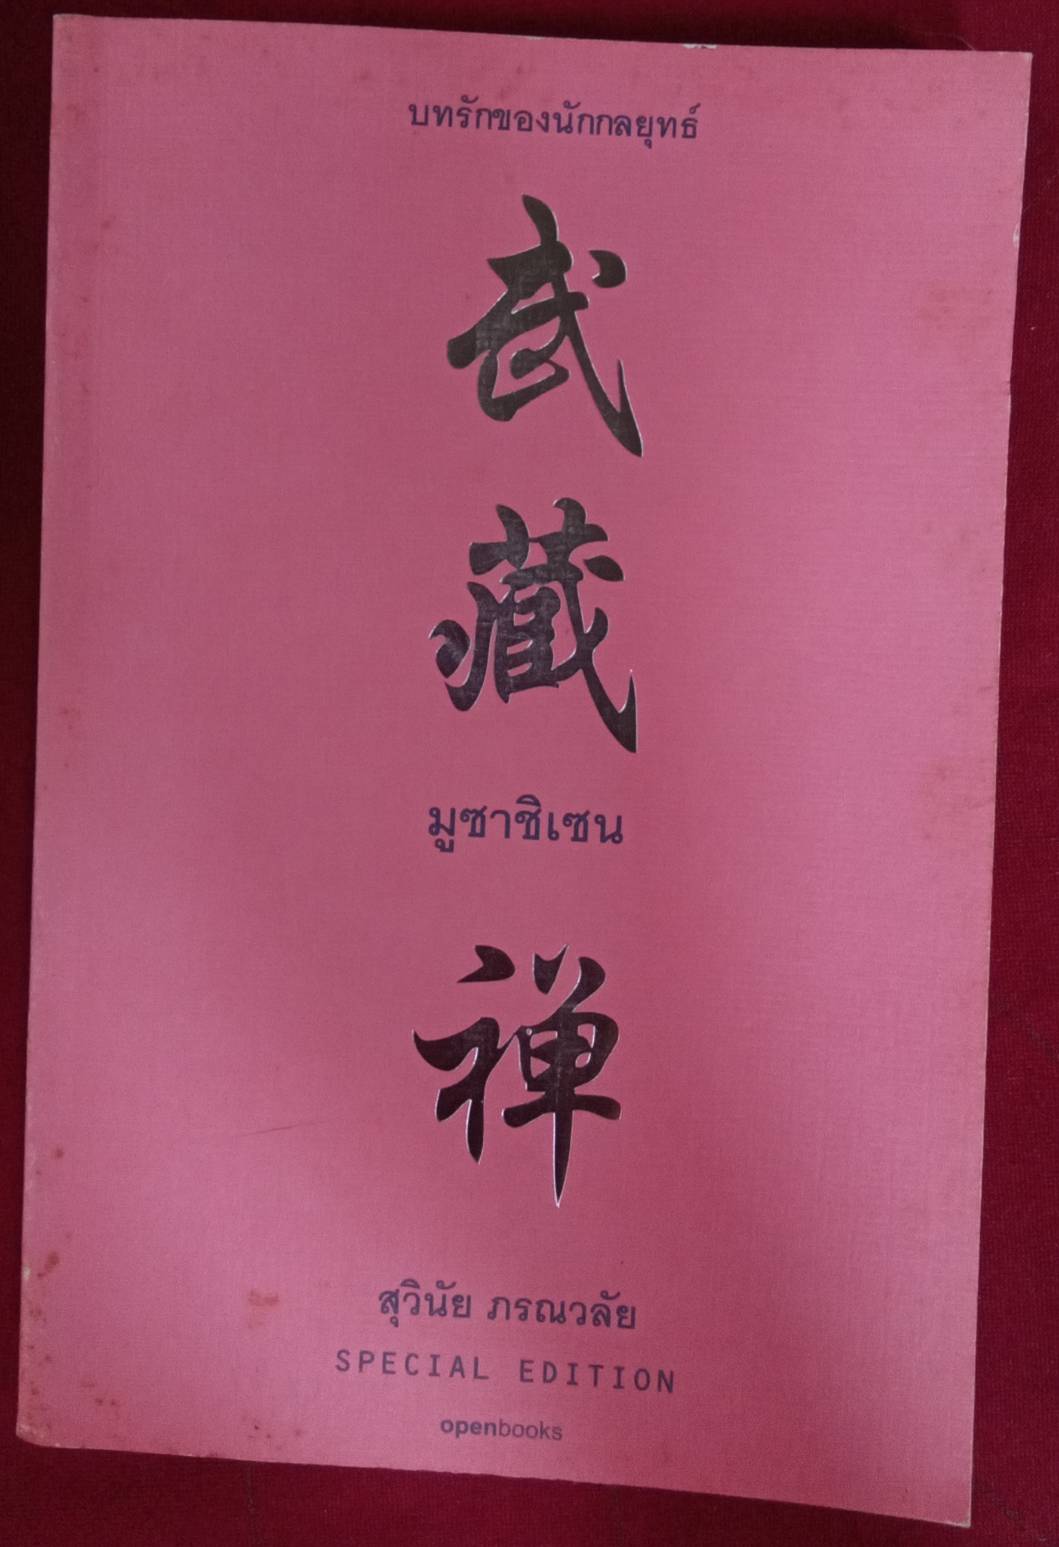 บทรักของนักกลยุทธ์
武
藏
มูซาชิเซน
禅
สุวินัย ภรณวลัย
SPECIAL EDITION
openbooks